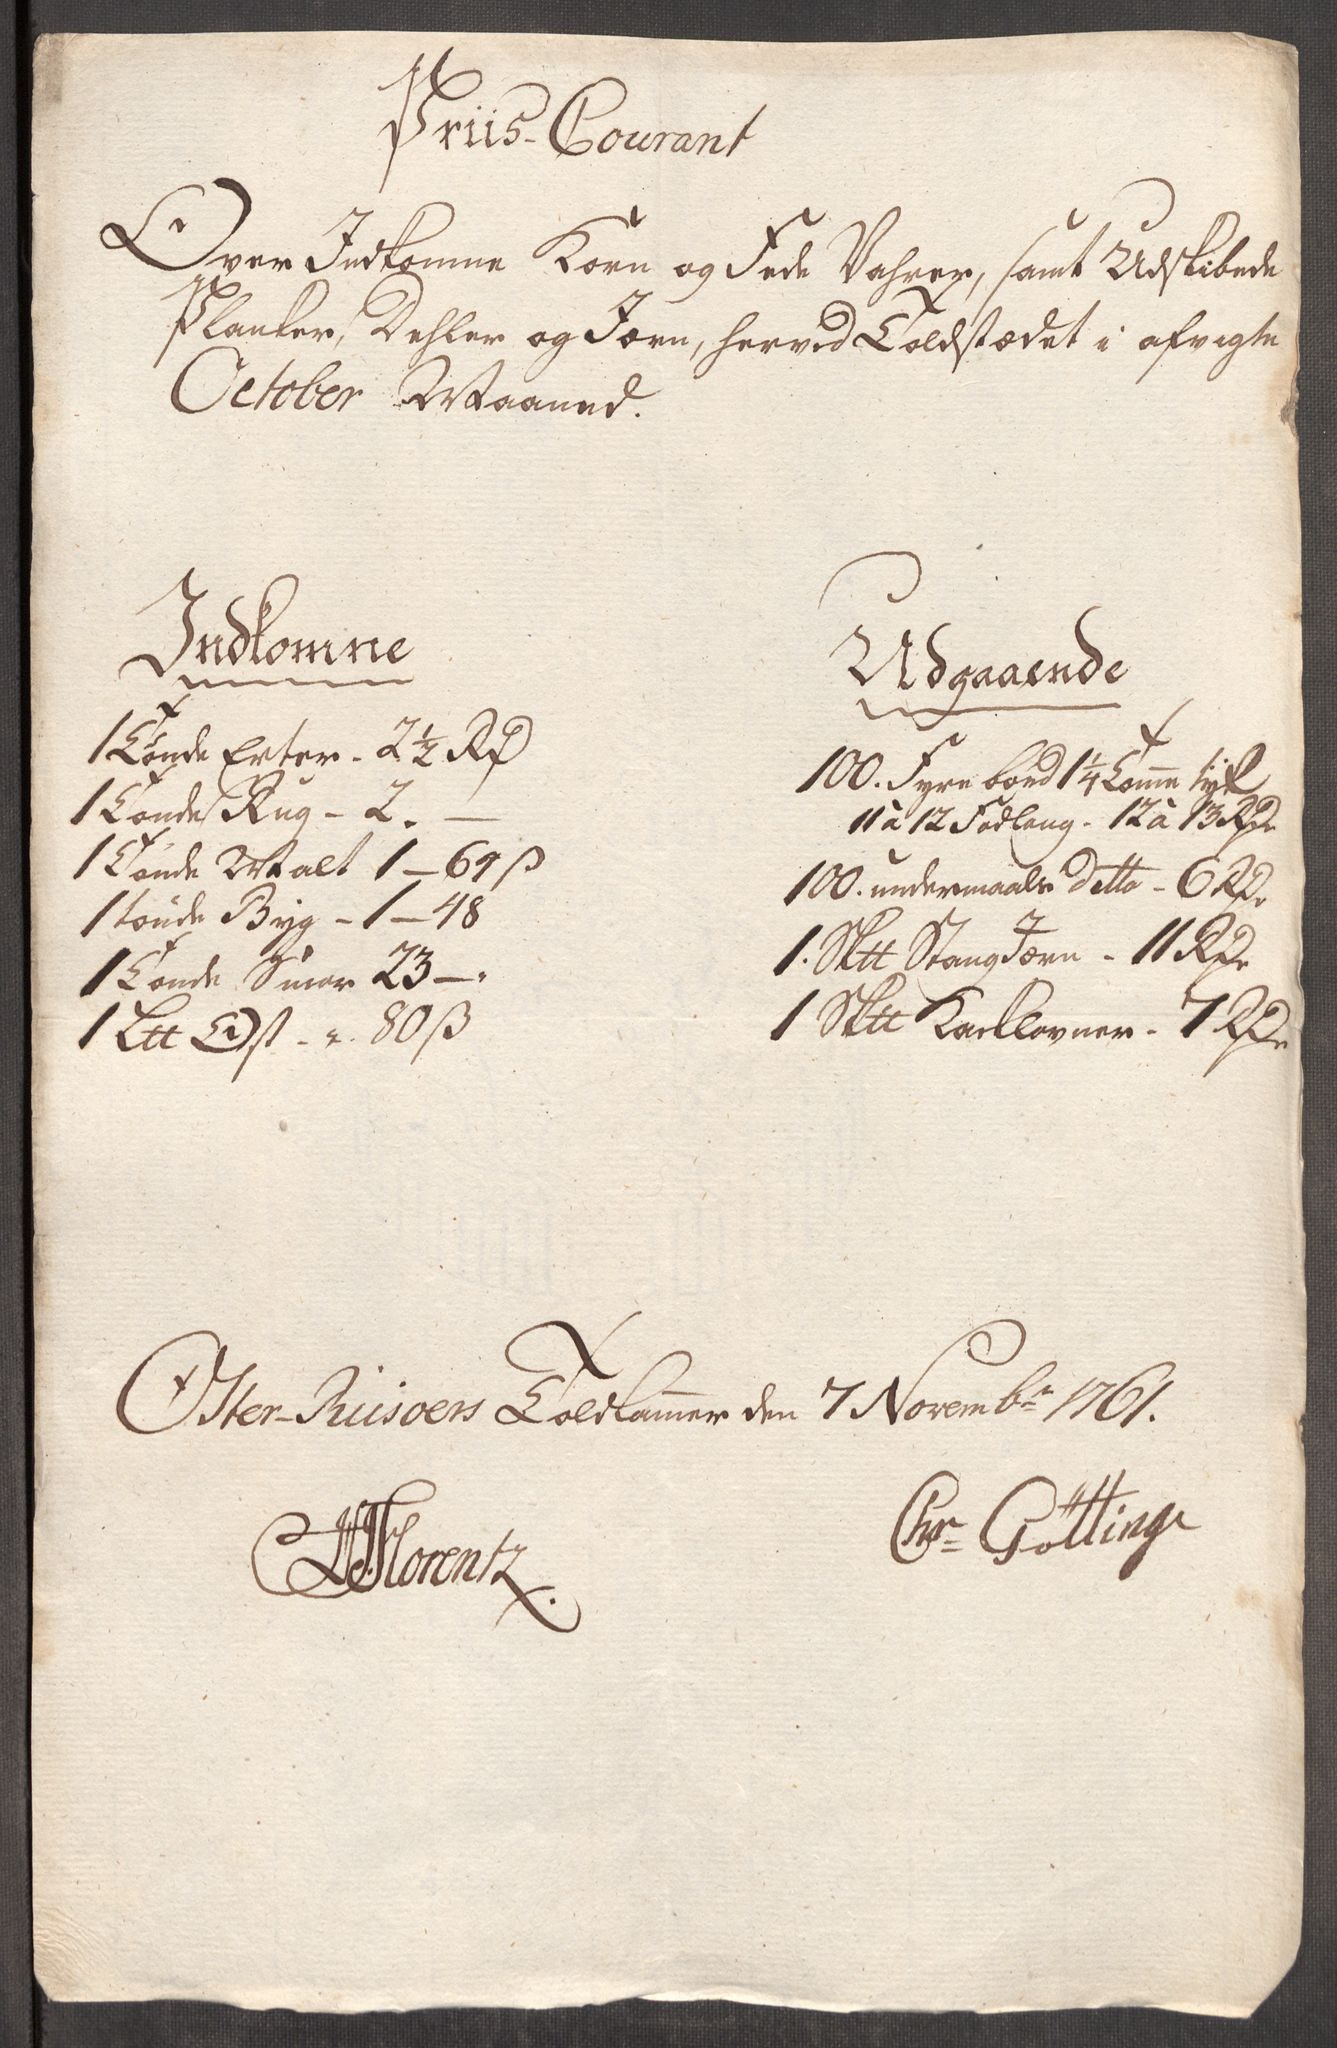 Priis-Courant
Over Indkomne Korn og Fede Vahrer, samt Udskibede
Planker, Dehler og Jærn, herved Toldstædet i afvigte
October Maaned.
Indkomne
1 Tønde Erter - 2 1/2 Rd
1 Tønde Rug - 2. —
1 Tønde Malt 1 — 64 ß
1 tønde Byg - 1 — 48
1 Tønde Smør 23 — "
1 Ltt Ost - ". 80 ß
Udgaaende
100. Fyrre bord 1 1/4 Tomme tyk
11 à 12 Fod lang - 12 à 13 Rd
100. undermaals ditto - 6 Rd
1. Sktt Stang Jærn - 11 Rd
1 Sktt Kackelovner - 7 Rd
Øster-Riisøers Toldkam̄er den 7 Novembr 1761.
Florentz.
Chr= Gøtting